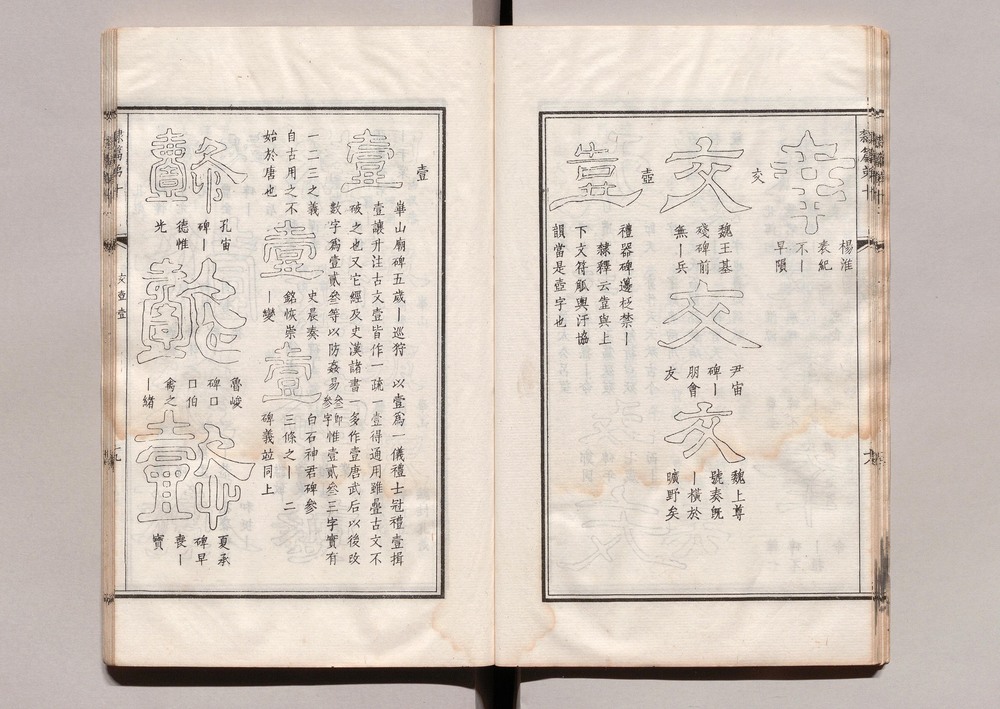 幸
楊淮
表紀
不丨
早隕
交
交
魏王基
殘碑前
無丨兵
交
尹宙
碑丨
朋會
友
交
魏上尊
號奏旣
丨橫於
曠野矣
壺
禮器碑籩柉禁丨
隸釋云壺與上
下文符觚輿汙協
韻當是壺字也
壹
壹
華山廟碑五歲丨巡狩 以壹爲一儀禮士冠禮壹揖
壹讓升注古文壹皆作一疏一壹得通用雖疊古文不
破之也又它經及史漢諸書一多作壹唐武后以後改
數字爲壹貳叄等以防姦易叄卽參字惟壹貳叄三字實有
一二三之義
自古用之不
始於唐也
壹
史晨奏
銘恢崇
丨變
壹
白石神君碑參
三條之丨 二
碑義竝同上
懿
孔宙
碑丨
德惟
光
懿
魯峻
碑口
口伯
禽之
丨緒
懿
夏承
碑早
喪丨
寶
隸篇第十
交壺壹